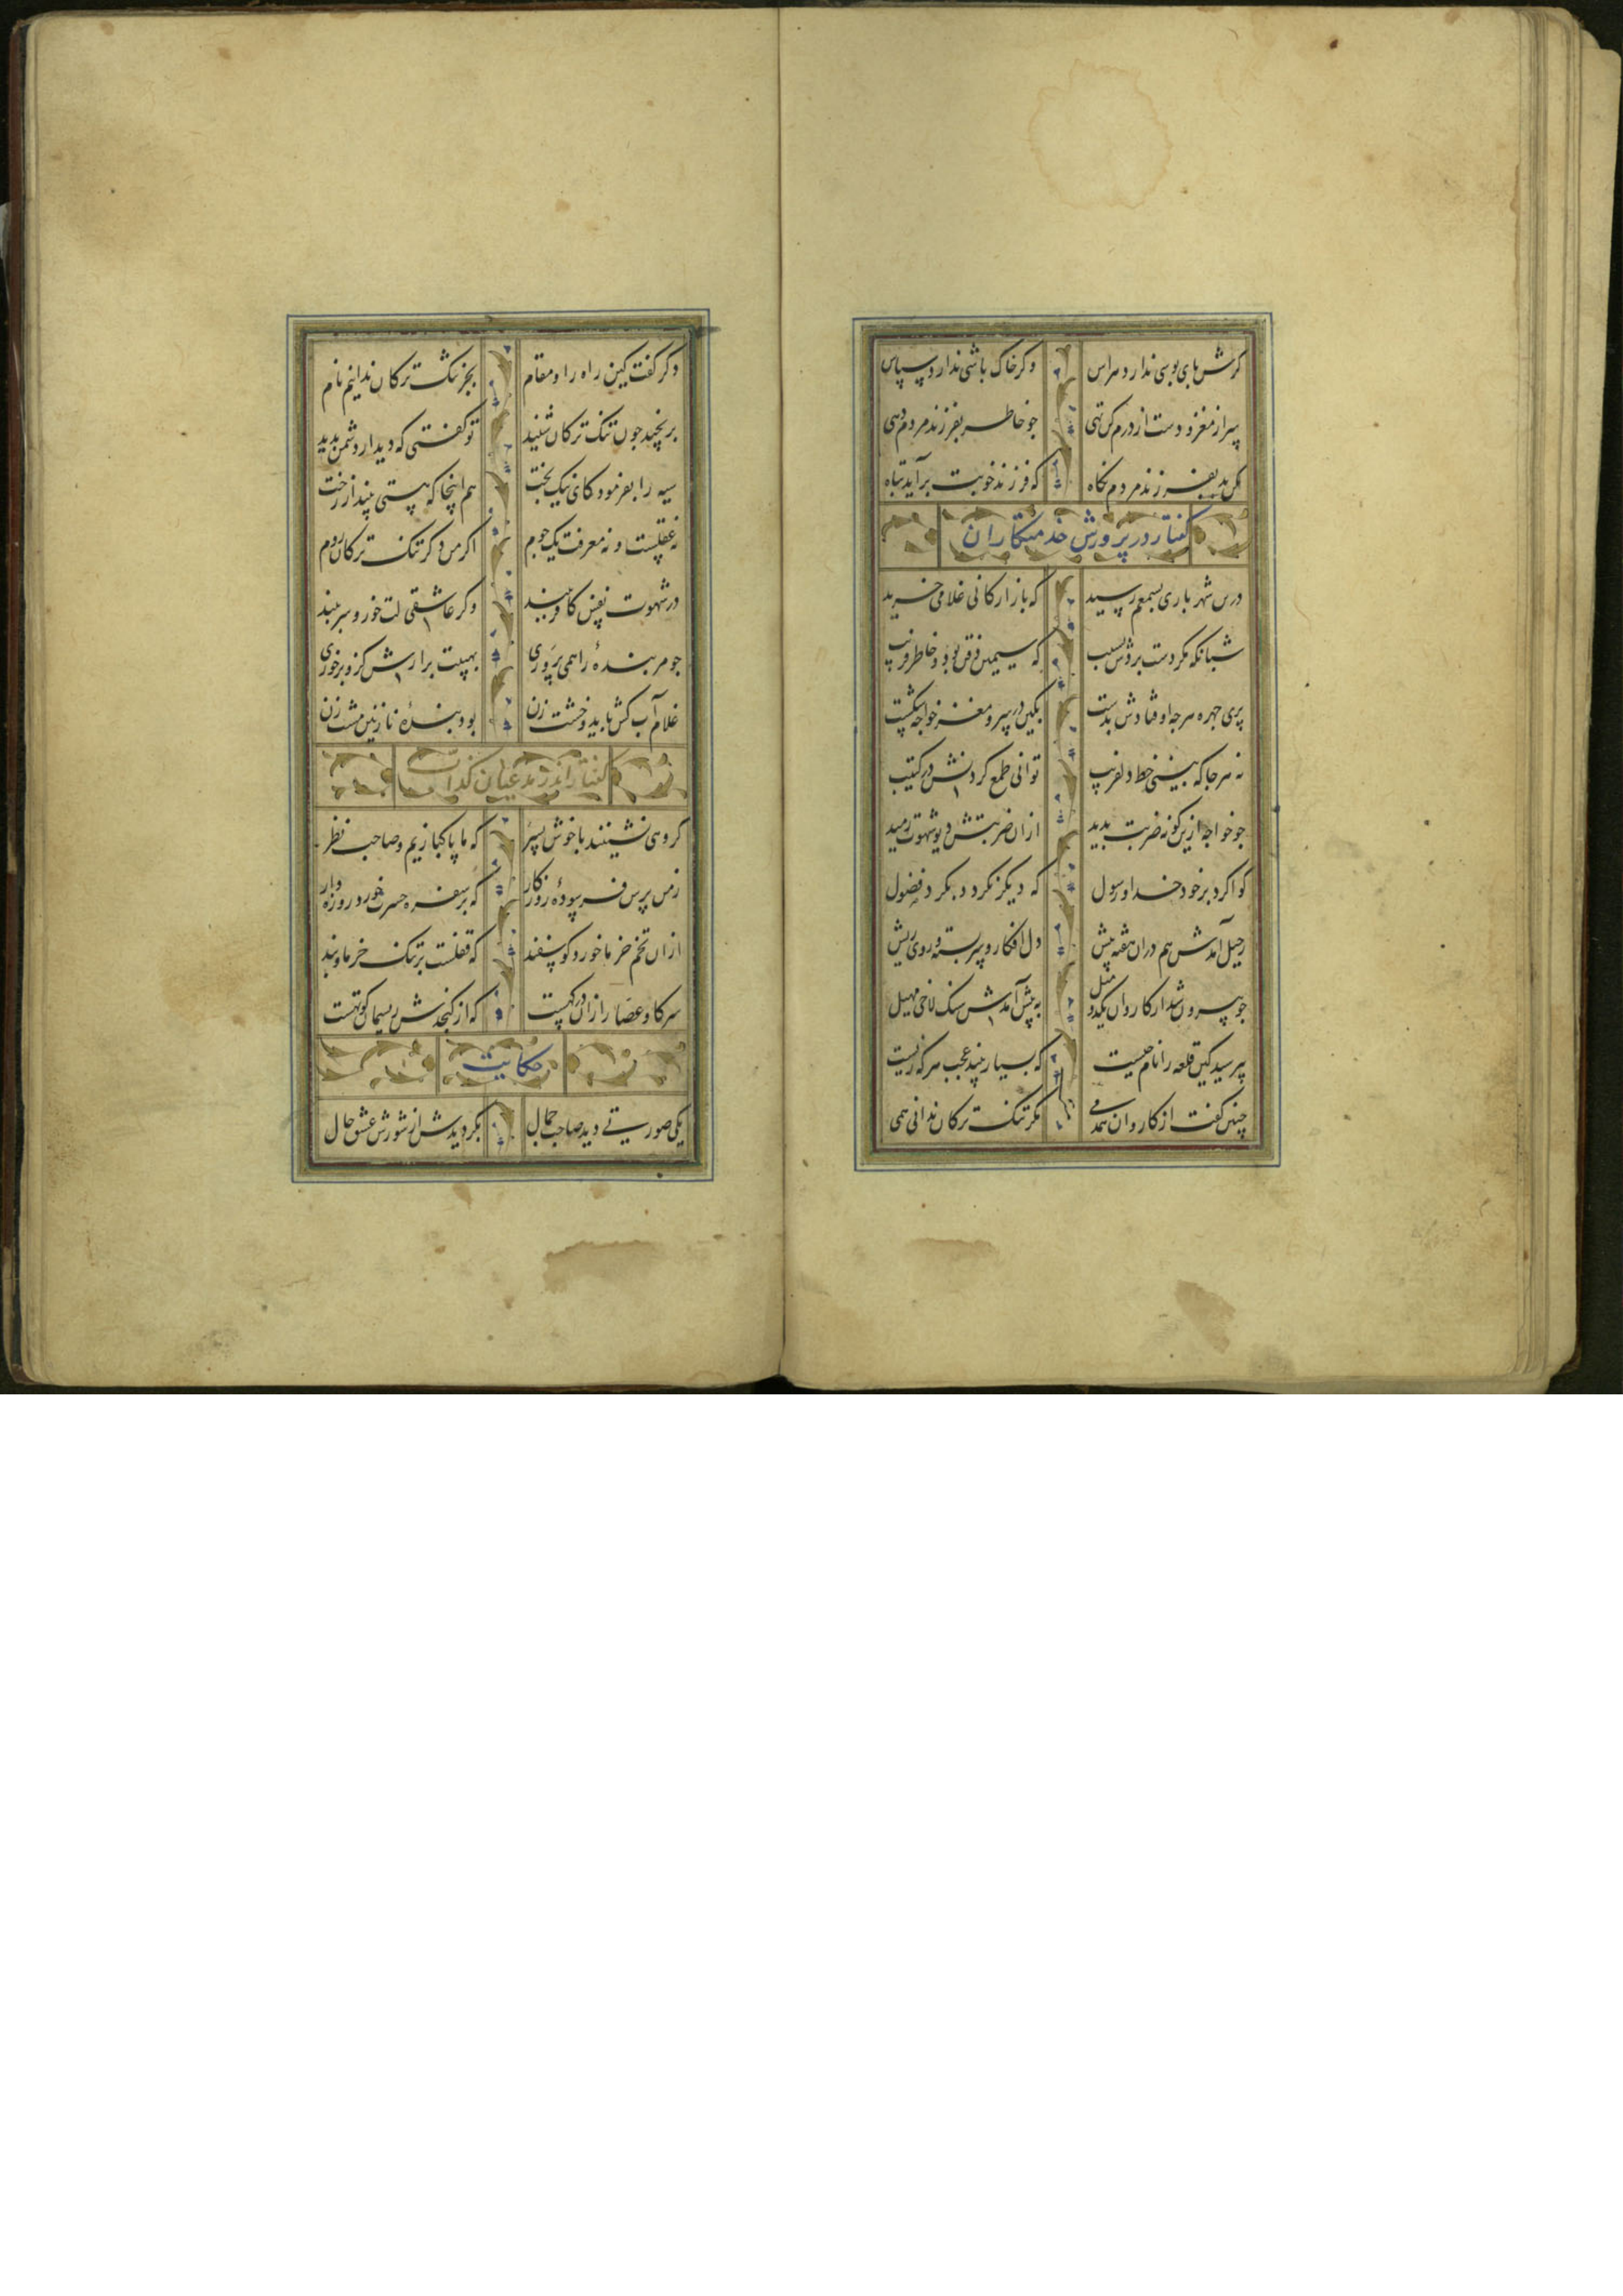 کرش پای بوسی ندارد هراس وکر خاک باشی نداردسپاس
سر از مغز و دست از درم کن تهی جو خاطر بفرزند مردم دهی
مکن بد بفرزند مردم نکاه که فرزند خویشت برآید تباه
کفتار در پرورش خدمتکاران
درین شهر باری بسمعم رسید که بازارکانی غلامی خرید
شبانکه مکر دست بردش بسیب که سیمین ذقن بود و خاطر فریب
پری جهره هرجه اوفتادش بدست بکین در سر و مغز خواجه شکست
نه هرجا که بینی خط دلفریب توانی طمع کردنش در کتیب
جو خواجه ازین کونه ضربت بدید ازان ضربتش دیو شهوت رمید
کوا کرد بر خود خدا و رسول که دیکر نکردد بکرد فضول
رحیل آمدش هم دران هفته پیش دل افکار و سر بسته و روی ریش
جو بیرون شد از کاروان یکدو میل به پیش آمدش سنک لاخی مهیل
بپرسید کین قلعه را نام جیست که بسیار بیند عجب هرکه زیست
چنین کفت از کاروان همدمی مکر تنک ترکان ندانی همی
دکر کفت کین راه را و مقام بجز تنک ترکان ندانیم نام
برنجید جون تنک ترکان شنید تو کفتی که دیدار دشمن بدید
سیه را بفرمود کای نیک بخت هم اینجا که هستی بینداز رخت
نه عقلست و نه معرفت یک جوم اکر من دکر تنک ترکان روم
در شهوت نفس کافر ببند وکر عاشقی لت خور و سر ببند
جو مر بندهٔ را همی پروری بهیبت برآرش کزو برخوری
غلام آب کش باید و خشت زن بود بندهٔ نازنین مشت زن
کفتار اندر مدعیان کذاب
کروهی نشینند با خوش پسر که ما پاکبازیم و صاحب نظر
ز من پرس فرسودهٔ روزکار که بر سفره حسرت خورد روزه دار
ازان تخم خرما خورد کوسفند که قفلست بر تنک خرما و بند
سر کاو عصار ازان در کهست که از کنجدش ریسمان کوتهست
حکایت
یکی صورتی دید صاحب جمال بکردیدش از شورش عشق حال